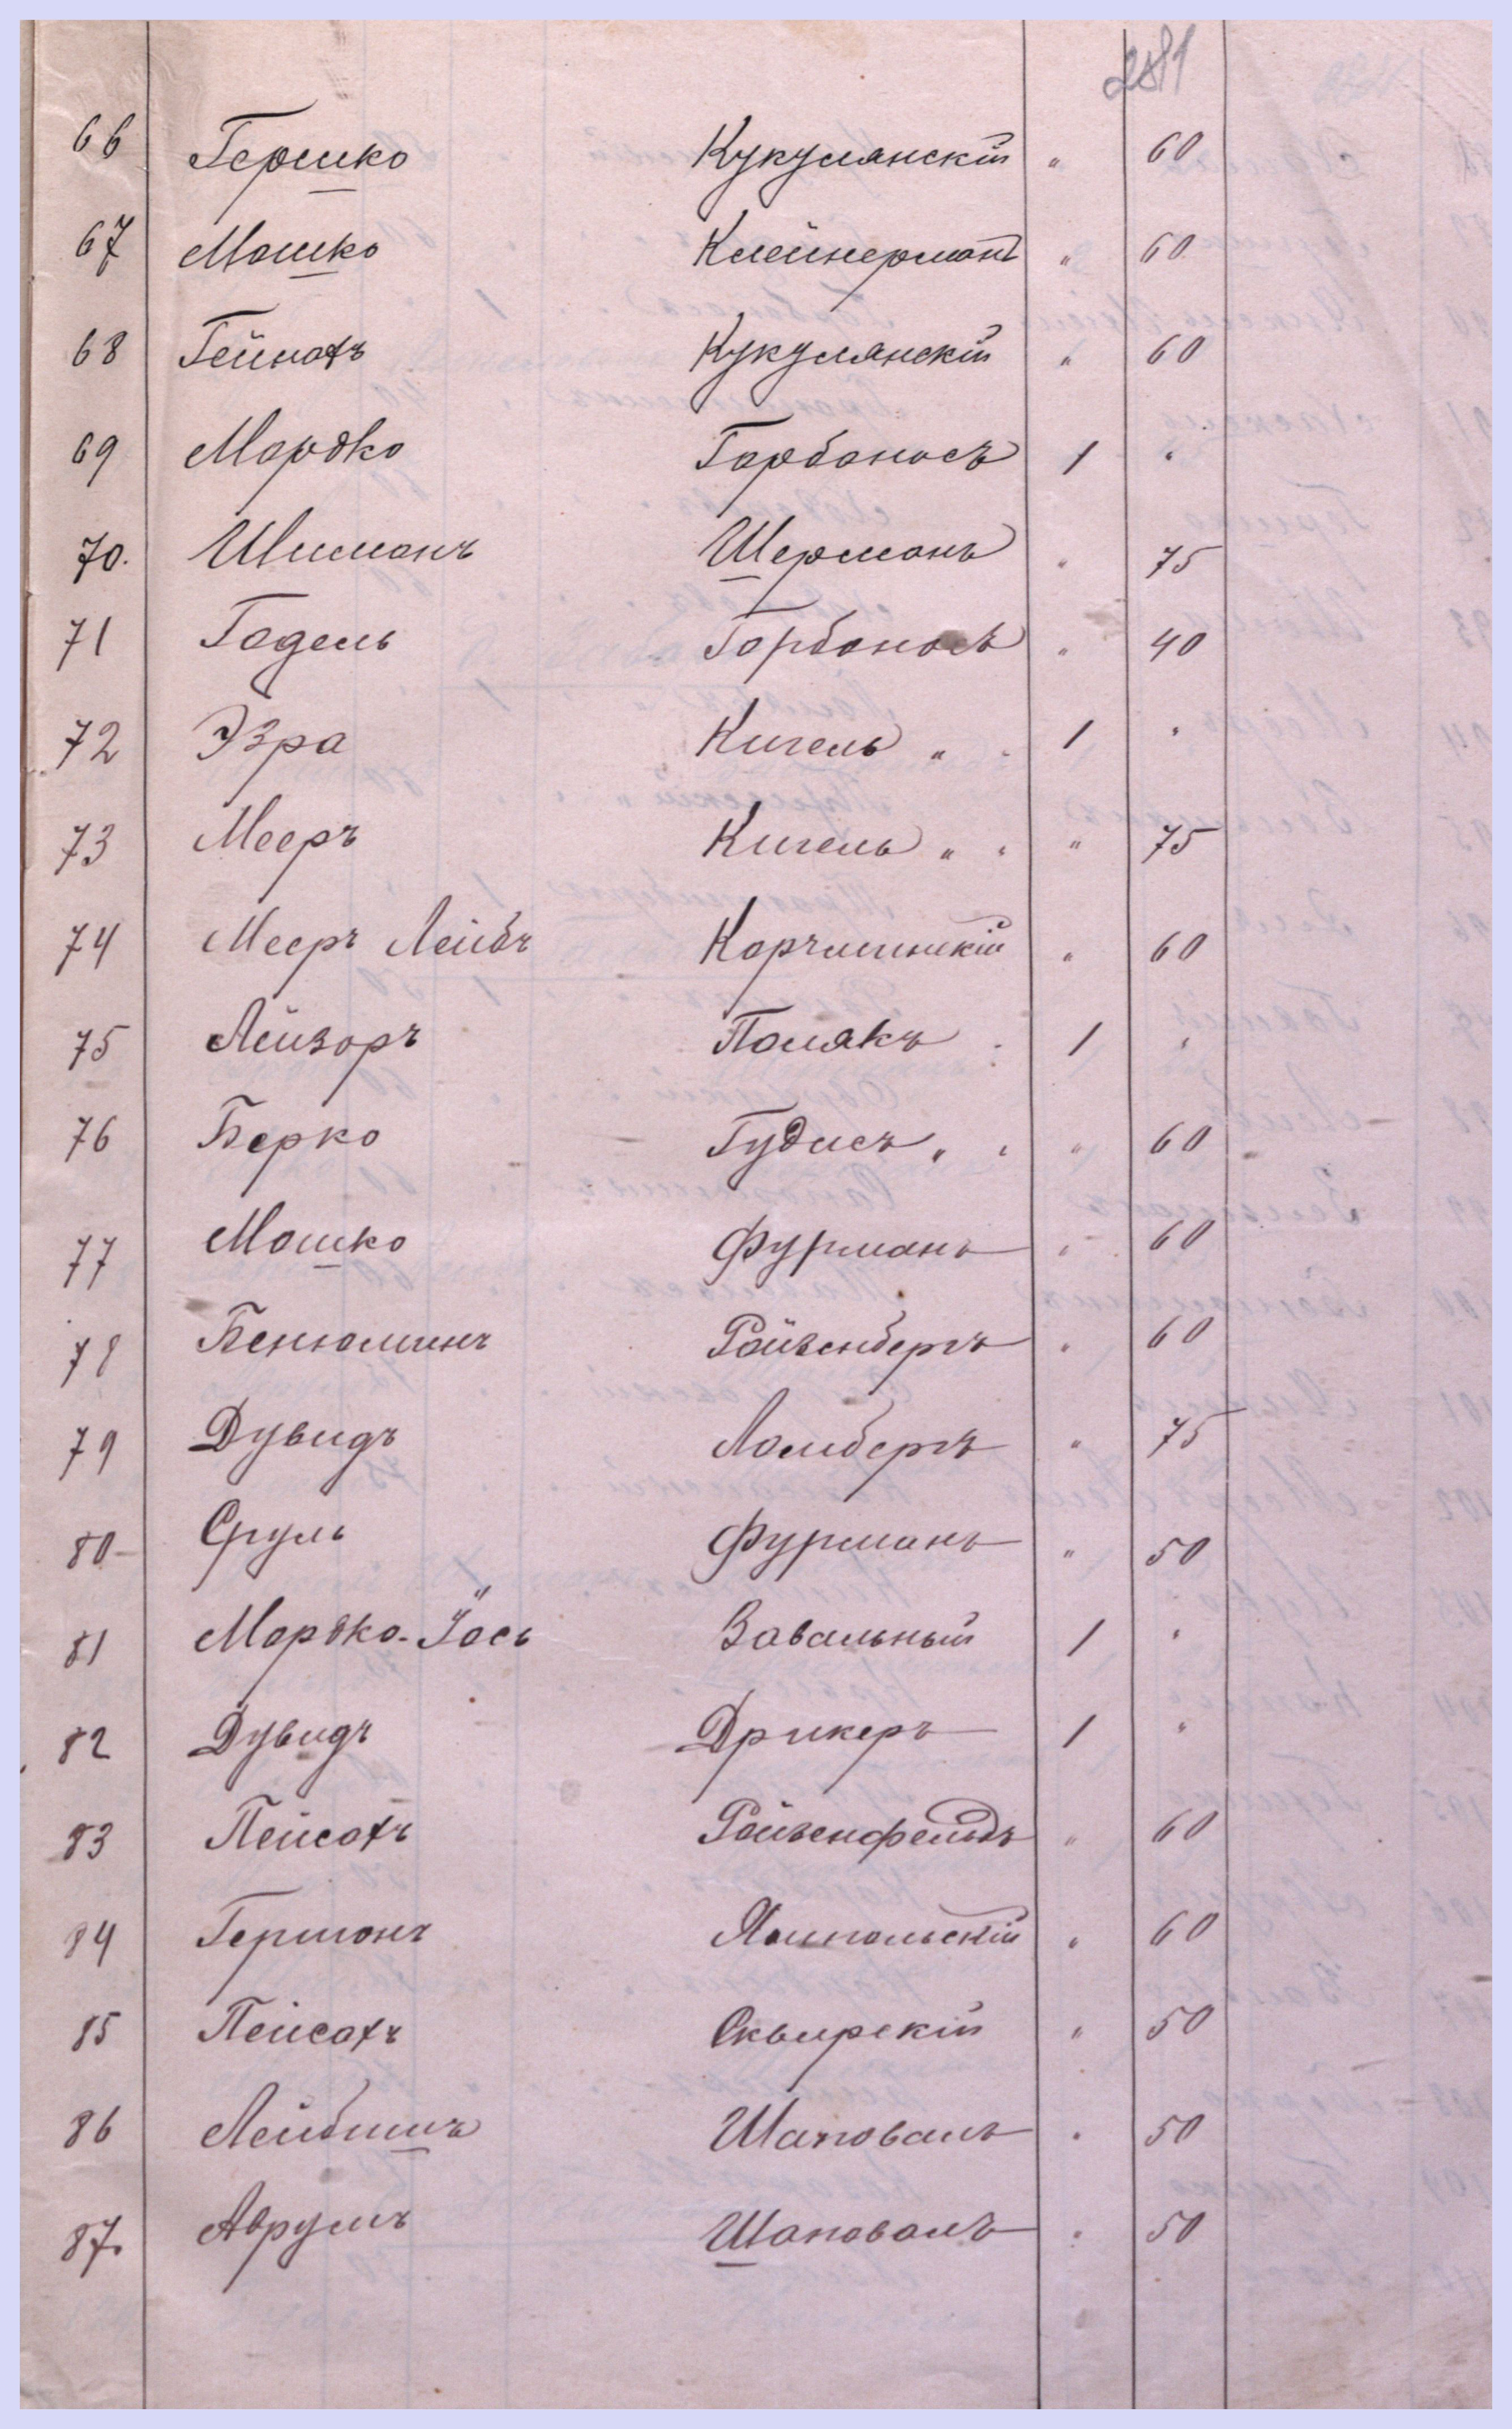 281
66 Гершко Кукулянскій " 60
67 Мошко Клейнерманъ " 60
68 Гейнохъ Кукулянскій " 60
69 Мордко Гарбоносъ 1 "
70. Шлиманъ Шерманъ " 75
71 Годель Горбоносъ " 40
72 Эзра Кигель " 1 "
73 Мееръ Кигель " " " 75
74 Мееръ Лейбъ Корчминскій " 60
75 Лейзоръ Полякъ 1 "
76 Берко Гудисъ " " " 60
77 Мошко Фурманъ " 60
78 Бенюминъ Ройзенбергъ " 60
79 Дувидъ Ломбергъ " 75
80 Сруль Фурманъ " 50
81 Мордко-Іось Завальный 1 "
82 Дувидъ Дрикеръ 1 "
83 Пейсахъ Ройзенфельдъ " 60
84 Гершонъ Ямпольскій " 60
85 Пейсахъ Сквирскій " 50
86 Лейбишъ Шаповалъ " 50
87. Аврумъ Шаповалъ " 50